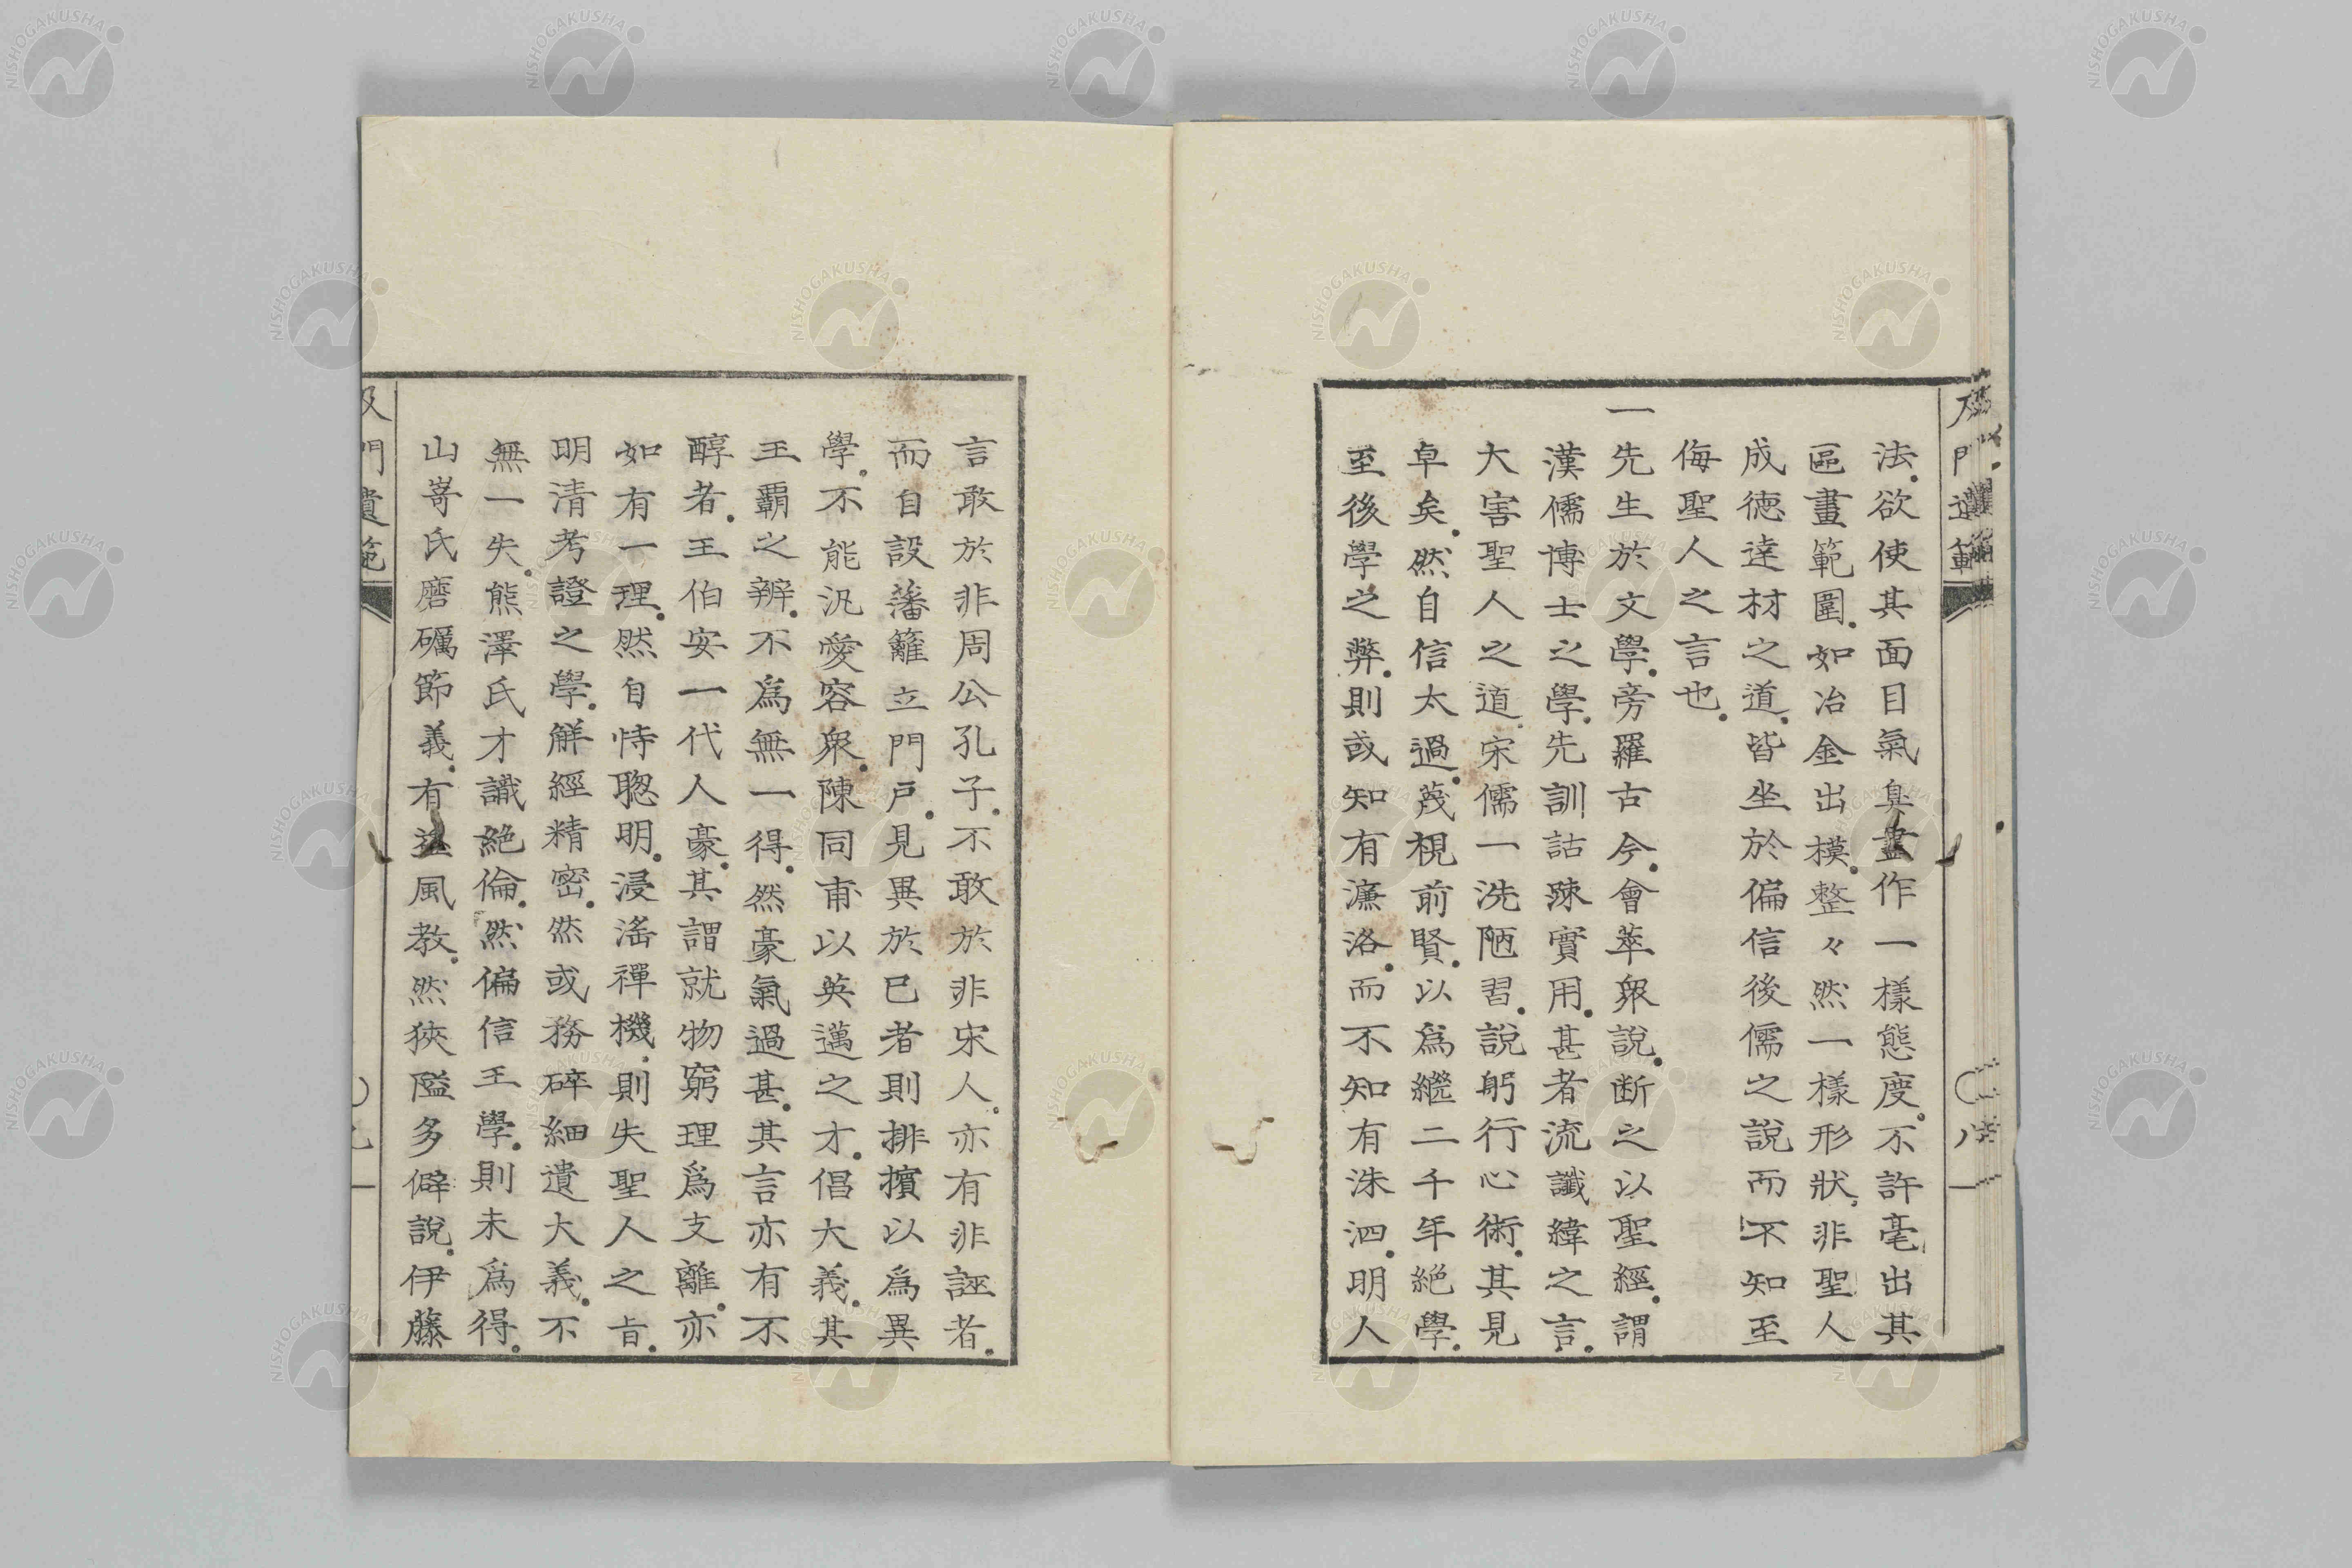 法。欲使其面目氣臭盡作一樣態度。不許毫出其
區畫範圍。如冶金出模。整々然一樣形狀。非聖人
成徳達材之道。皆坐於偏信後儒之說而不知至
侮聖人之言也。
一先生於文學。旁羅古今。會萃衆說。断之以聖經。謂
漢儒博士之學。先訓詁踈實用。甚者流讖緯之言。
大害聖人之道。宋儒一洗陋習。說躬行心術。其見
卓矣。然自信太過。蔑視前賢。以為繼二千年絶學。
至後學之弊。則或知有濂洛。而不知有洙泗。明人
言敢於非周公孔子。不敢於非宋人。亦有非誣者。
而自設藩籬立門戸。見異於已者則排擯以為異
學。不能汎愛容衆。陳同甫以英邁之才。倡大義。其
王覇之辨。不爲無一得。然豪氣過甚。其言亦有不
醇者。王伯安一代人豪。其謂就物窮理爲支離。亦
如有一理。然自恃聡明。浸淫禪機。則失聖人之旨。
明清考證之學。解經精密。然或務碎細遺大義。不
無一失。熊澤氏才識絶倫。然偏信王學。則未爲得。
山嵜氏磨礪節義。有逛風教。然狹隘多僻說。伊藤
及門遺範
及門遺範
八
NISHOGAKUSHA